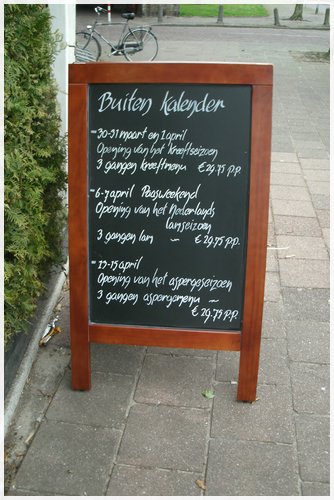 Buiten Kalender
- 30-31 maart en 1 april
Opening van het Kreeftseizoen
3 gangen kreeftmenu € 29.75 p.p.
- 6-7 april Paasweekend
Opening van het Nederlands
lamseizoen
3 gangen lam ~ € 29.75 p.p.
- 13-15 april
Opening van het aspergeseizoen
3 gangen aspergemenu ~
€ 29.75 p.p.